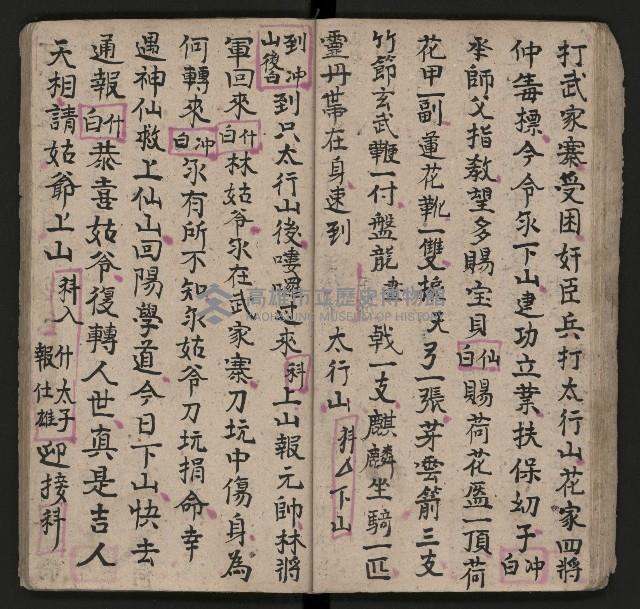 打武家寨受困奸臣兵打太行山花家四將
仲毒標今令汆下山建功立業扶保幼子 冲白
丞師父指教望多賜宝貝 仙白 賜荷花盔一頂荷
花甲一副蓮花靴一雙 弓一張芽雲箭三支
竹節玄武鞭一付盤龍 戟一支麒麟坐騎一匹
靈丹帯在身速到 太行山 科 下山
到山後白 冲 到只太行山後嘍囉过來 科 上山報元帥林將
軍回來 什白 林姑爷汆在武家寨刀坑中傷身為
何轉來 冲白 汆有所不知汆姑爷刀坑捐命幸
遇神仙救上仙山回陽學道今日下山快去
通報 什白 恭喜姑爷復轉人世真是吉人
天相請姑爺上山 科入 什太子報仕雄 迎接科
高雄市立歷史博物館
KAOHSIUNG MUSEUM OF HISTORY